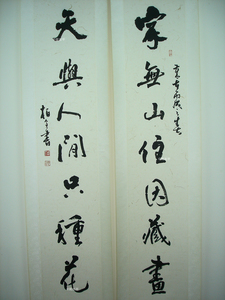 家無山住因藏畫
天與人間只種花